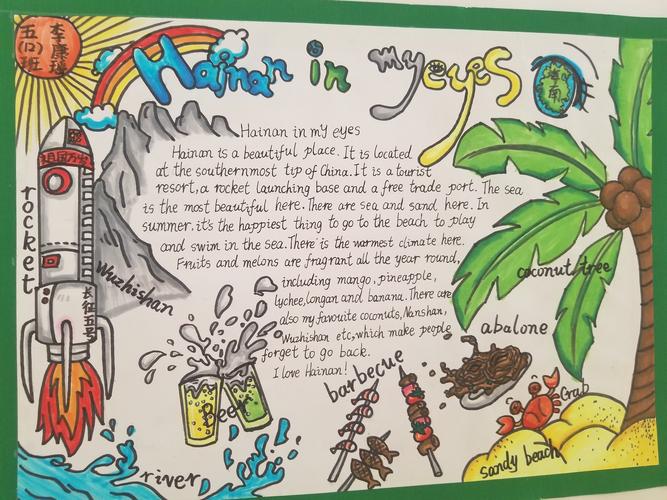 五(12)班
李康瑾
Hainan in my eyes
海南
Hainan in my eyes
Hainan is a beautiful place. It is located
at the southernmost tip of China. It is a tourist
resort, a rocket launching base and a free trade port. The sea
is the most beautiful here. There are sea and sand here. In
summer, it's the happiest thing to go to the beach to play
and swim in the sea. There is the warmest climate here.
Fruits and melons are fragrant all the year round,
including mango, pineapple,
lychee, longan and banana. There are
also my favourite coconuts, Nanshan,
Wuzhishan etc, which make people
forget to go back.
I love Hainan!
rocket
长征五号
Wuzhishan
coconut tree
abalone
barbecue
Beer
Crab
sandy beach
river